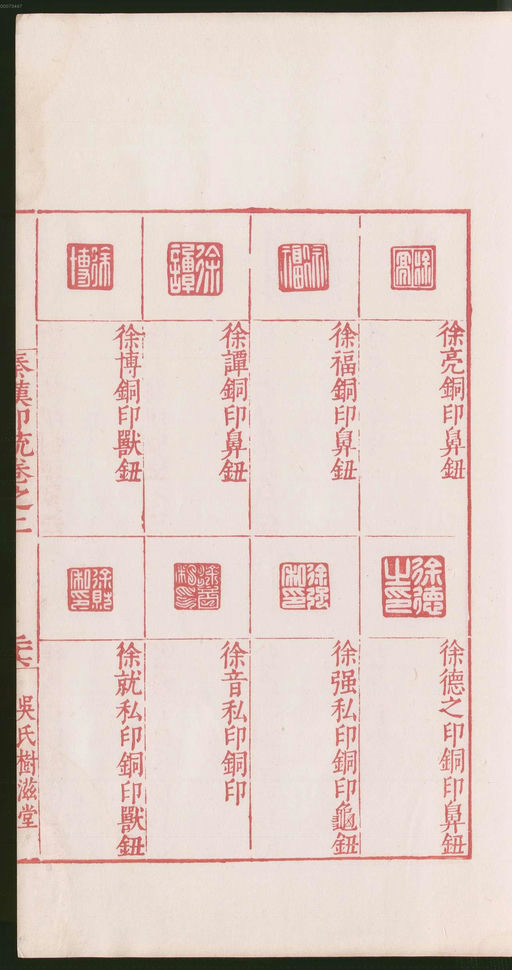 00073497
徐亮銅印鼻鈕
徐福銅印鼻鈕
徐譚銅印鼻鈕
徐博銅印獸鈕
徐德之印銅印鼻鈕
徐强私印銅印龜鈕
徐音私印銅印
徐就私印銅印獸鈕
秦漢印統卷之二
吳氏樹滋堂